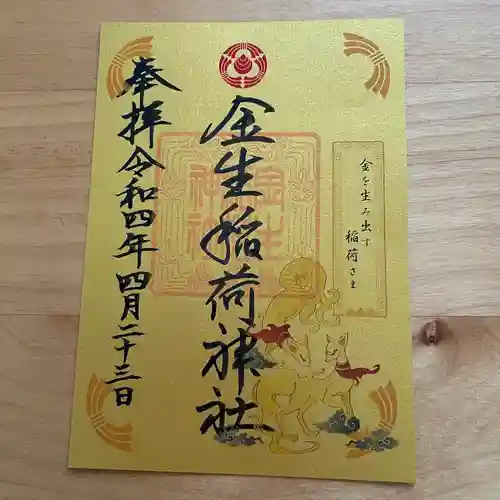 金を生み出す
稲荷さま
金生稲荷神社
奉拝令和四年四月二十三日